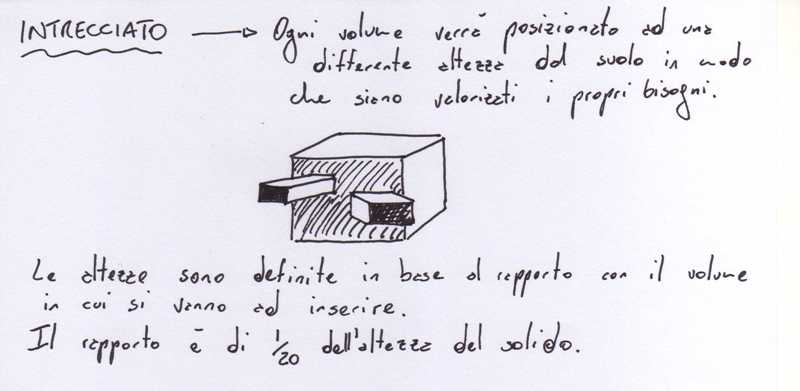 INTRECCIATO → Ogni volume verrà posizionato ad una
differente altezza dal suolo in modo
che siano valorizzati i propri bisogni.
Le altezze sono definite in base al rapporto con il volume
in cui si vanno ad inserire.
Il rapporto è di 1/20 dell'altezza del solido.